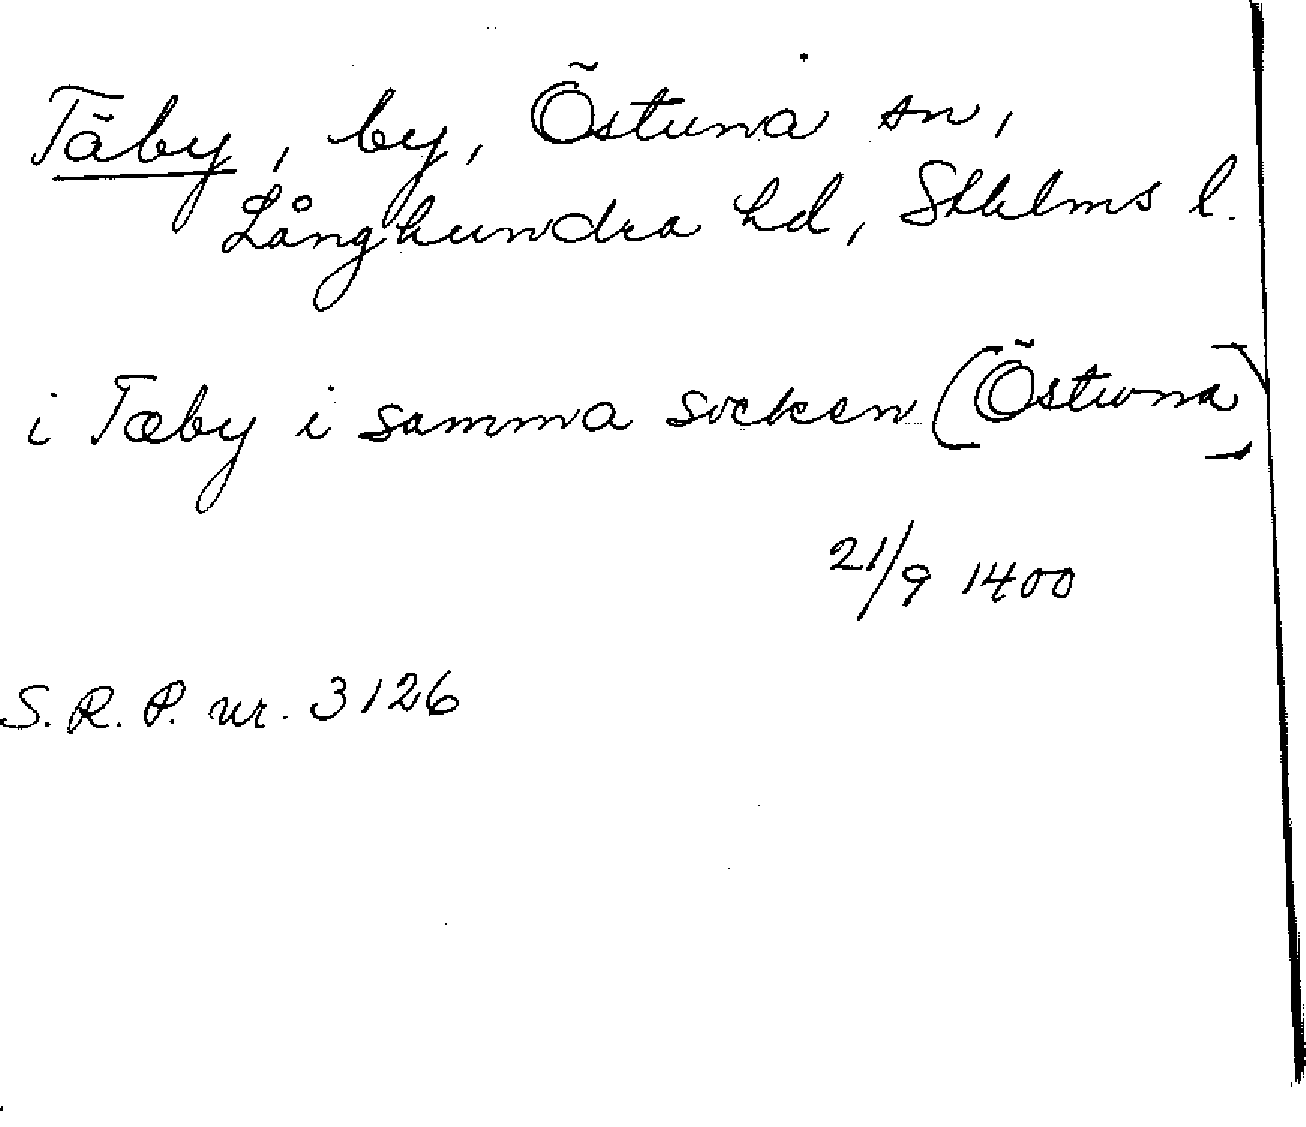 Täby, by, Östuna sn,
Långhundra hd, Sthlms l.
i Tæby i samma socken [Östuna]
21/9 1400
S. R. P. nr. 3126